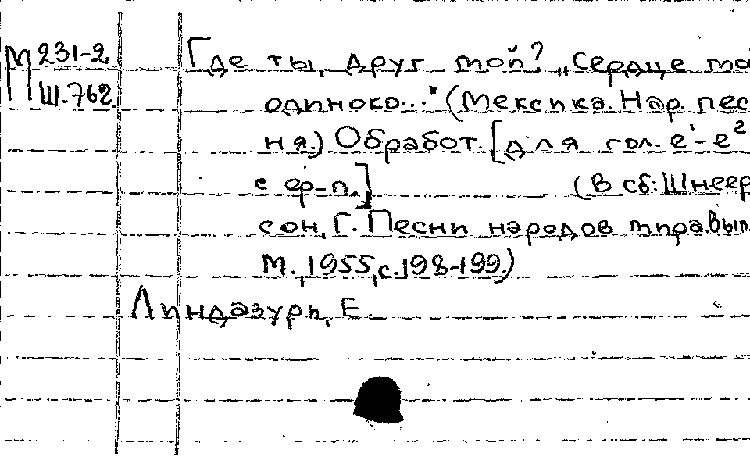 М 231-2
Ш.762
Где ты, друг мой? „Сердце мо
одиноко..." (Мексика. Нар. пес
ня) Обработ. [для гол. e¹-e²
с ф-п.] (В сб: Шнеер
сон, Г. Песни народов мира. Вып.
М., 1955, с. 198-199)
Линдазури, Е.